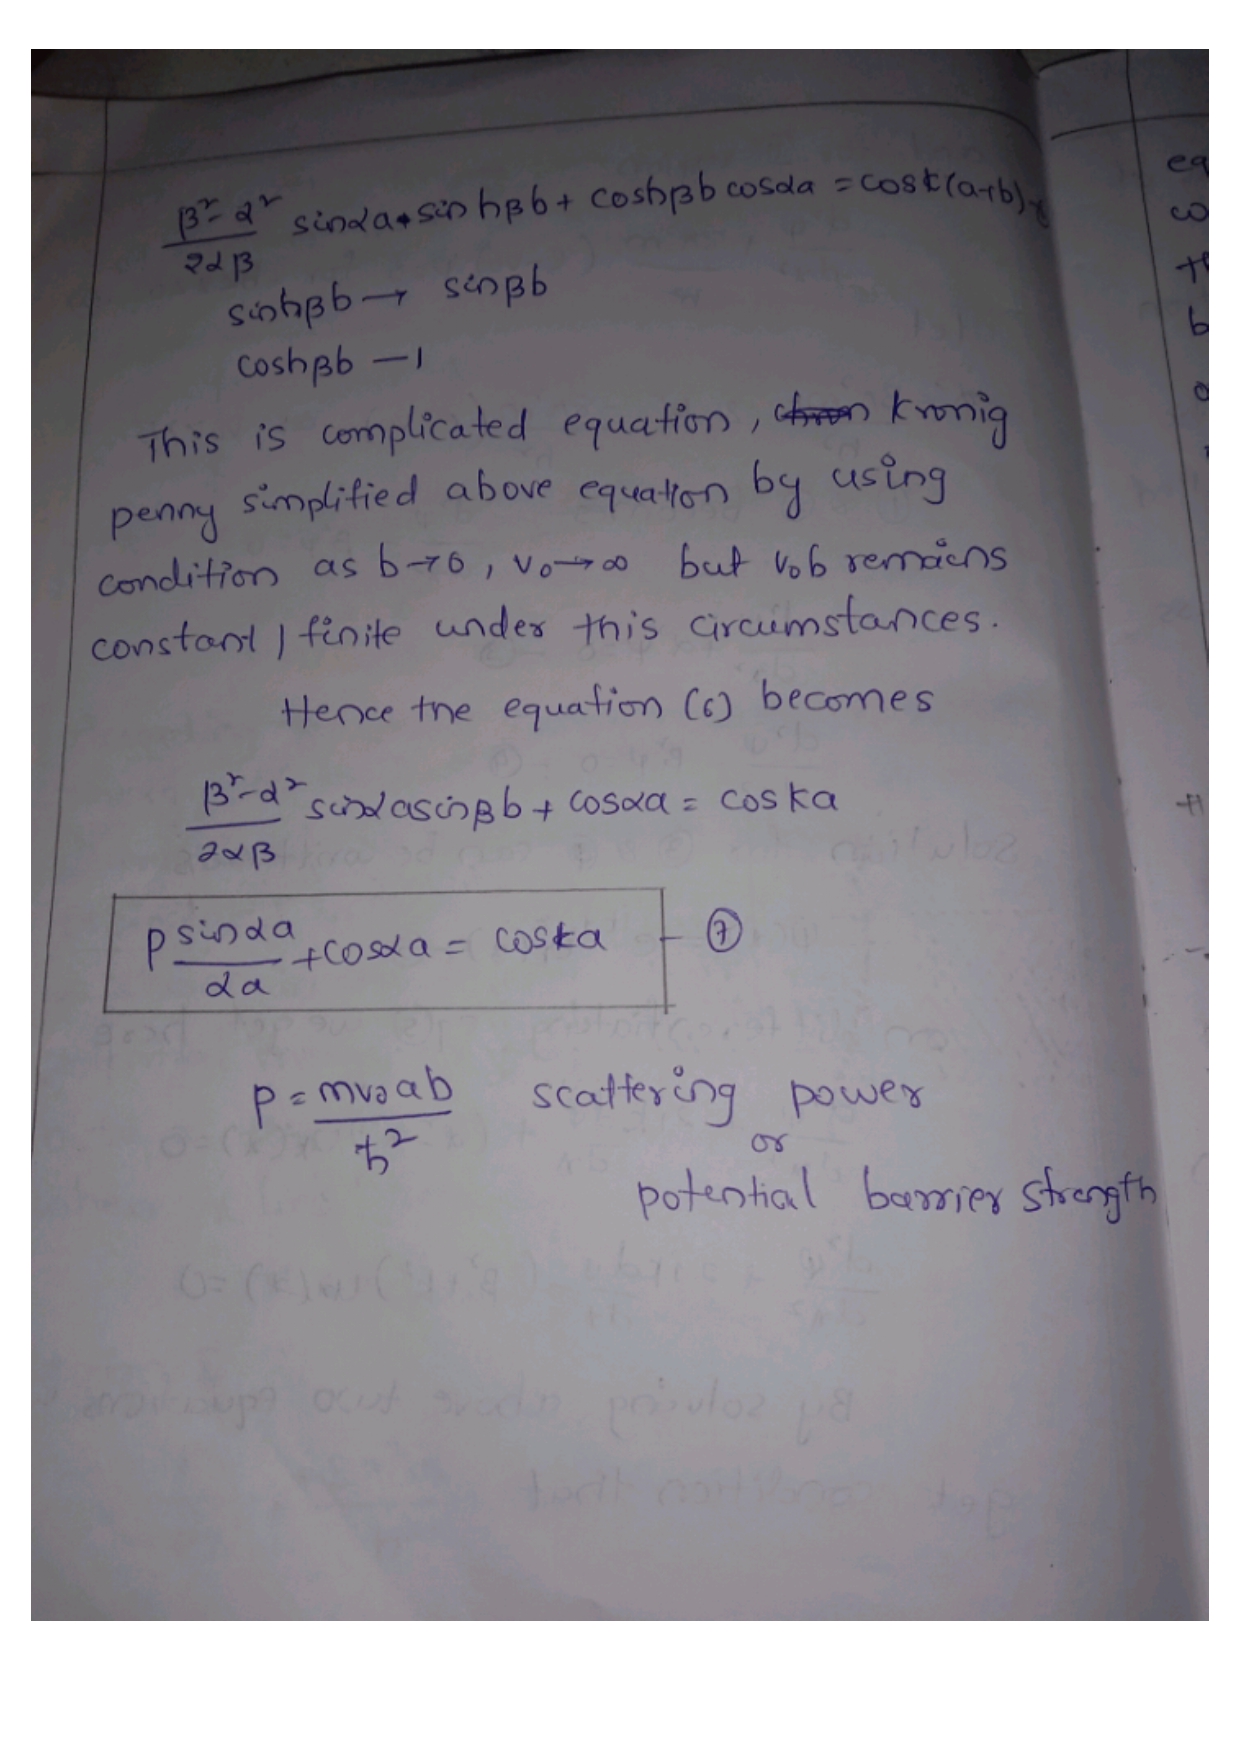 β²-α²/2αβ sinαa·sinhβb + coshβb cosαa = cosk(a+b)
sinhβb → sinβb
coshβb - 1
This is complicated equation, kronig
penny simplified above equation by using
condition as b→0, v₀→∞ but v₀b remains
constant / finite under this circumstances.
Hence the equation (6) becomes
β²-α²/2αβ sinαa sinβb + cosαa = coska
P sinαa/αa + cosαa = coska - ⑦
P = mv₀ab/ħ² scattering power
or
potential barrier strength